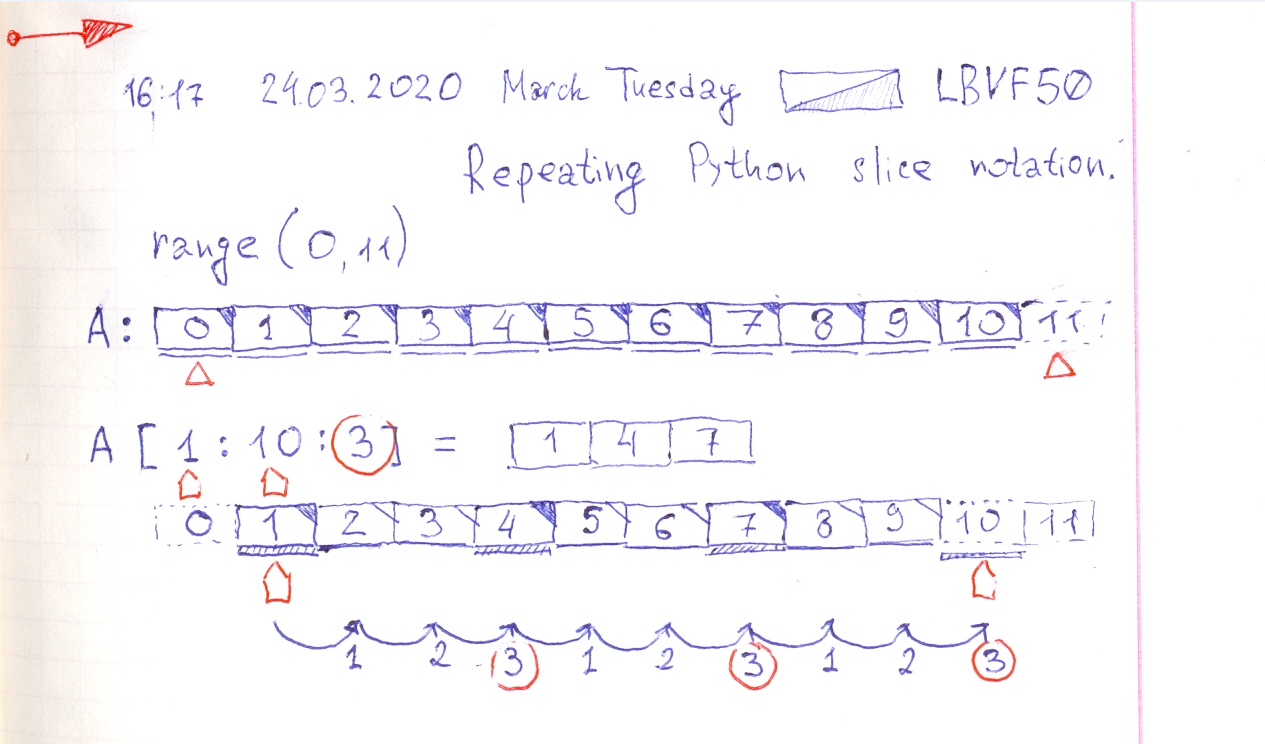 16:17 24.03.2020 March Tuesday LBVF50
Repeating Python slice notation.
range (0,11)
A: 0 1 2 3 4 5 6 7 8 9 10 11
A [1:10:3] = 1 4 7
0 1 2 3 4 5 6 7 8 9 10 11
1 2 3 1 2 3 1 2 3